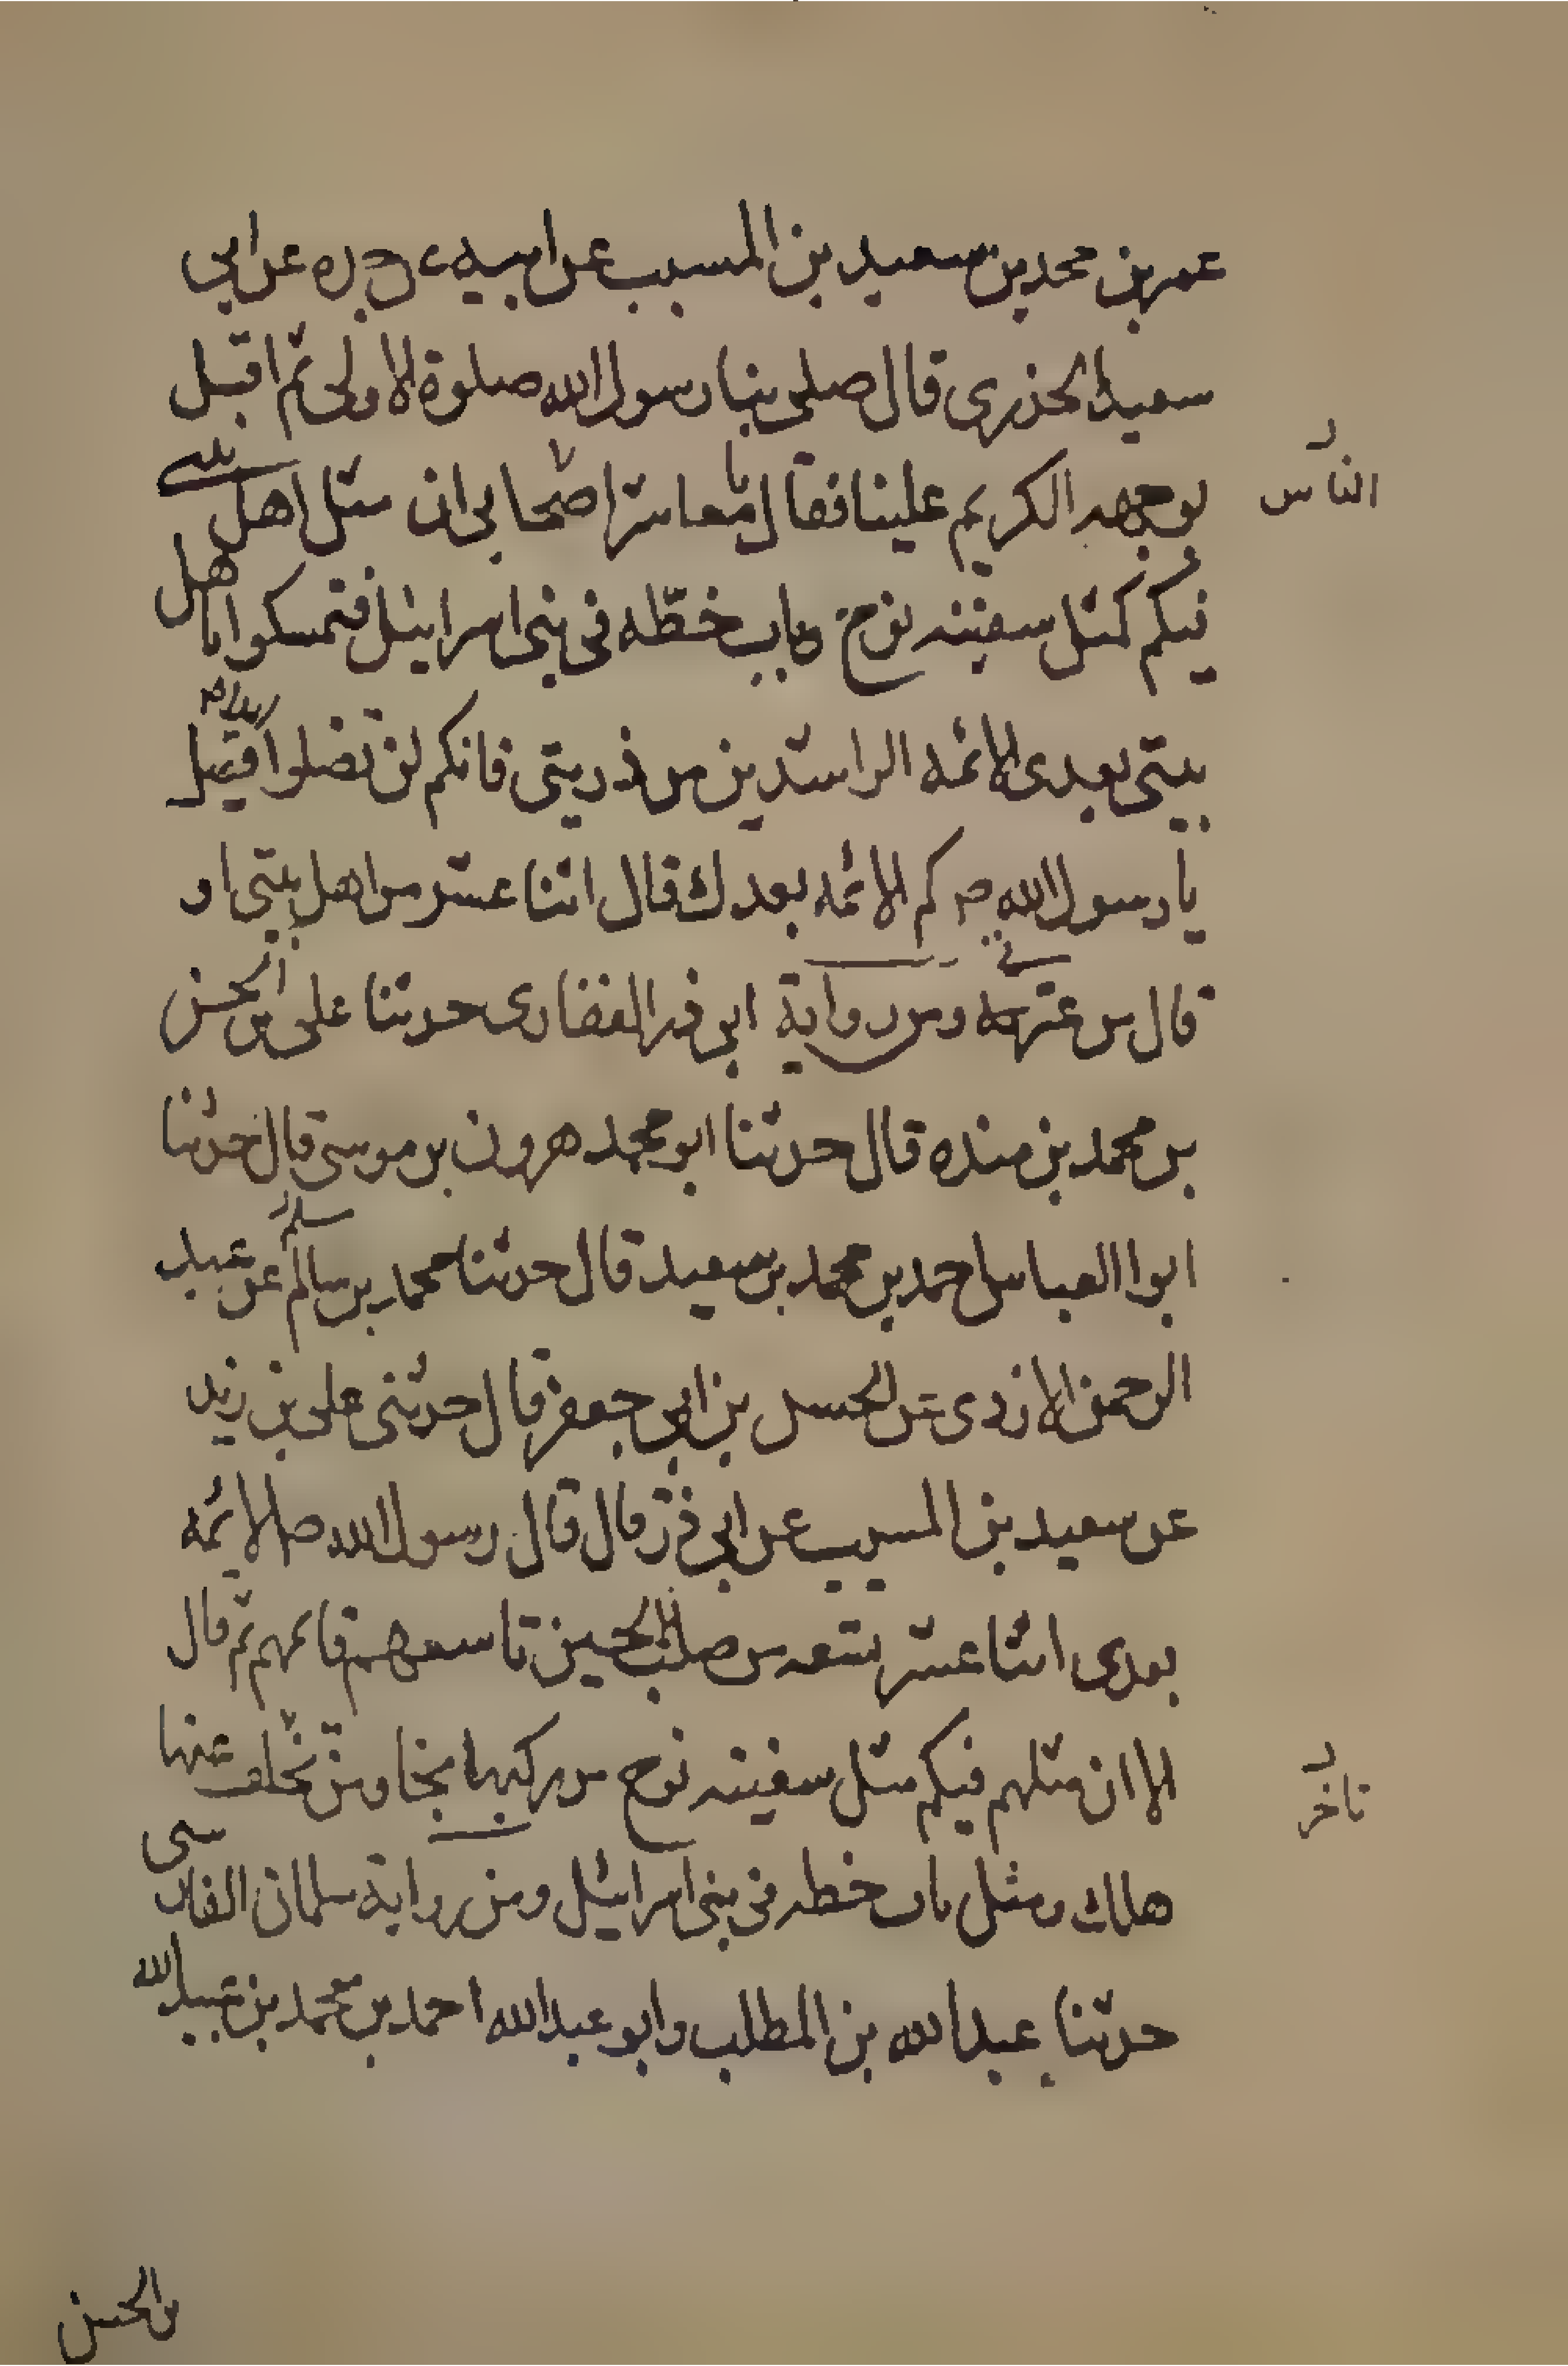 عمر بن محمد بن سعيد بن المسيب عن ابيه عن جده عن ابي
سعيد الخذري قال صلى بنا رسول الله صلوة الاولى ثم اقبل
بوجهه الكريم علينا فقال يا معاشر اصحابي ان مثل اهل بيتي
الناس
فيكم كمثل سفينه نوح وباب حطّه في بني اسرائيل فتمسكوا باهل
بيتي بعدي الائمه الراشدين من ذريتي فانكم لن تضلوا ابدا فقيل
يا رسول الله ص كم الائمه بعدك قال اثنا عشر من اهل بيتي او
قال من عترته ومن رواية ابي ذر الغفاري حدثنا علي بن الحسن
بن محمد بن منده قال حدثنا ابو محمد هرون بن موسى قال حدثنا
ابوا العباس احمد بن محمد بن سعيد قال حدثنا محمد بن سالم عن عبد
الرحمن الازدي عن الحسن بن ابي جعفر قال حدثني علي بن زيد
عن سعيد بن المسيب عن ابي ذر قال قال رسول الله ص الائمه
بعدي اثنا عشر تسعه من صلب الحسين تاسعهم قائمهم ثم قال
الا ان مثلهم فيكم مثل سفينه نوح من ركبها نجا ومن تخلف عنها
تاخر
هلك ومثل باب حطه في بني اسرائيل ومن رواية سلمان الفارسي
حدثنا عبد الله بن المطلب وابو عبد الله احمد بن محمد بن عبيد الله
بن الحسن